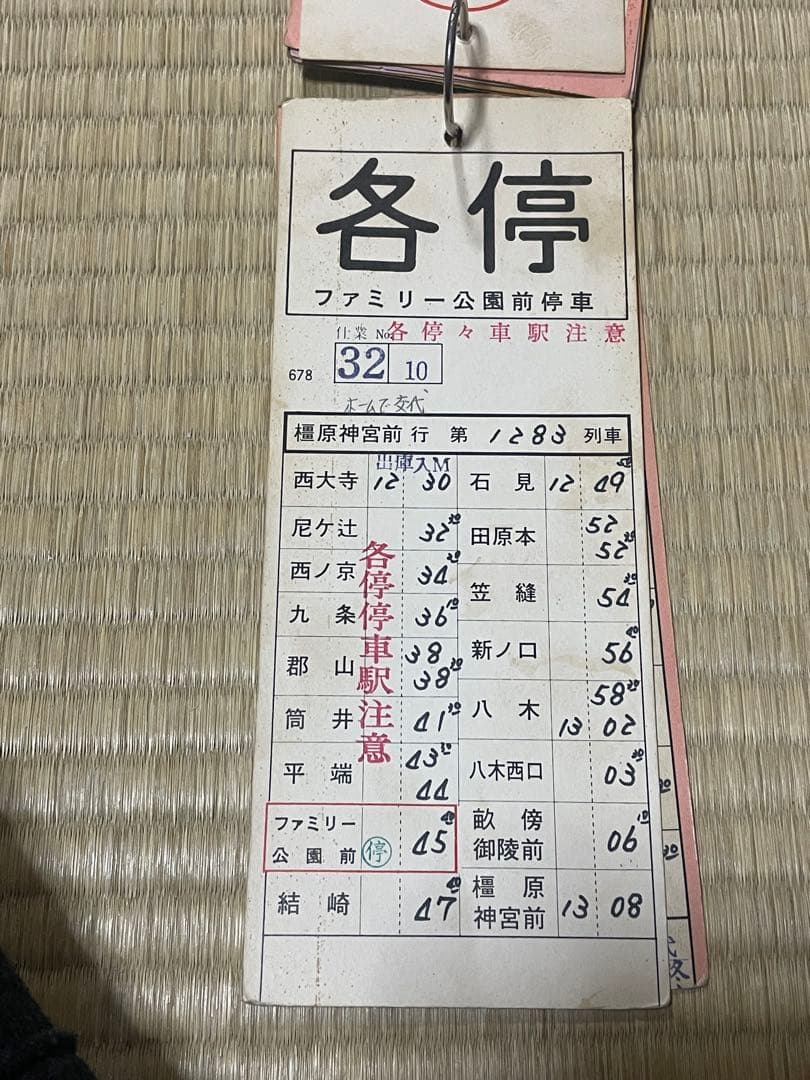 各停
ファミリー公園前停車
仕業 No. 各停々車駅注意
678 32 10
ホームで交代
橿原神宮前 行 第 1283 列車
出庫入M
西大寺 12 30
尼ケ辻 32 20
西ノ京 34 20
九条 36 10
郡山 38
38 20
筒井 41 10
平端 43 10
44
ファミリー
公園前 停 45 40
結崎 47 40
各停停車駅注意
石見 12 49 50
田原本 52
52 20
笠縫 54 20
新ノ口 56 40
八木 58 20
13 02
八木西口 03 20
畝傍
御陵前 06 10
橿原
神宮前 13 08